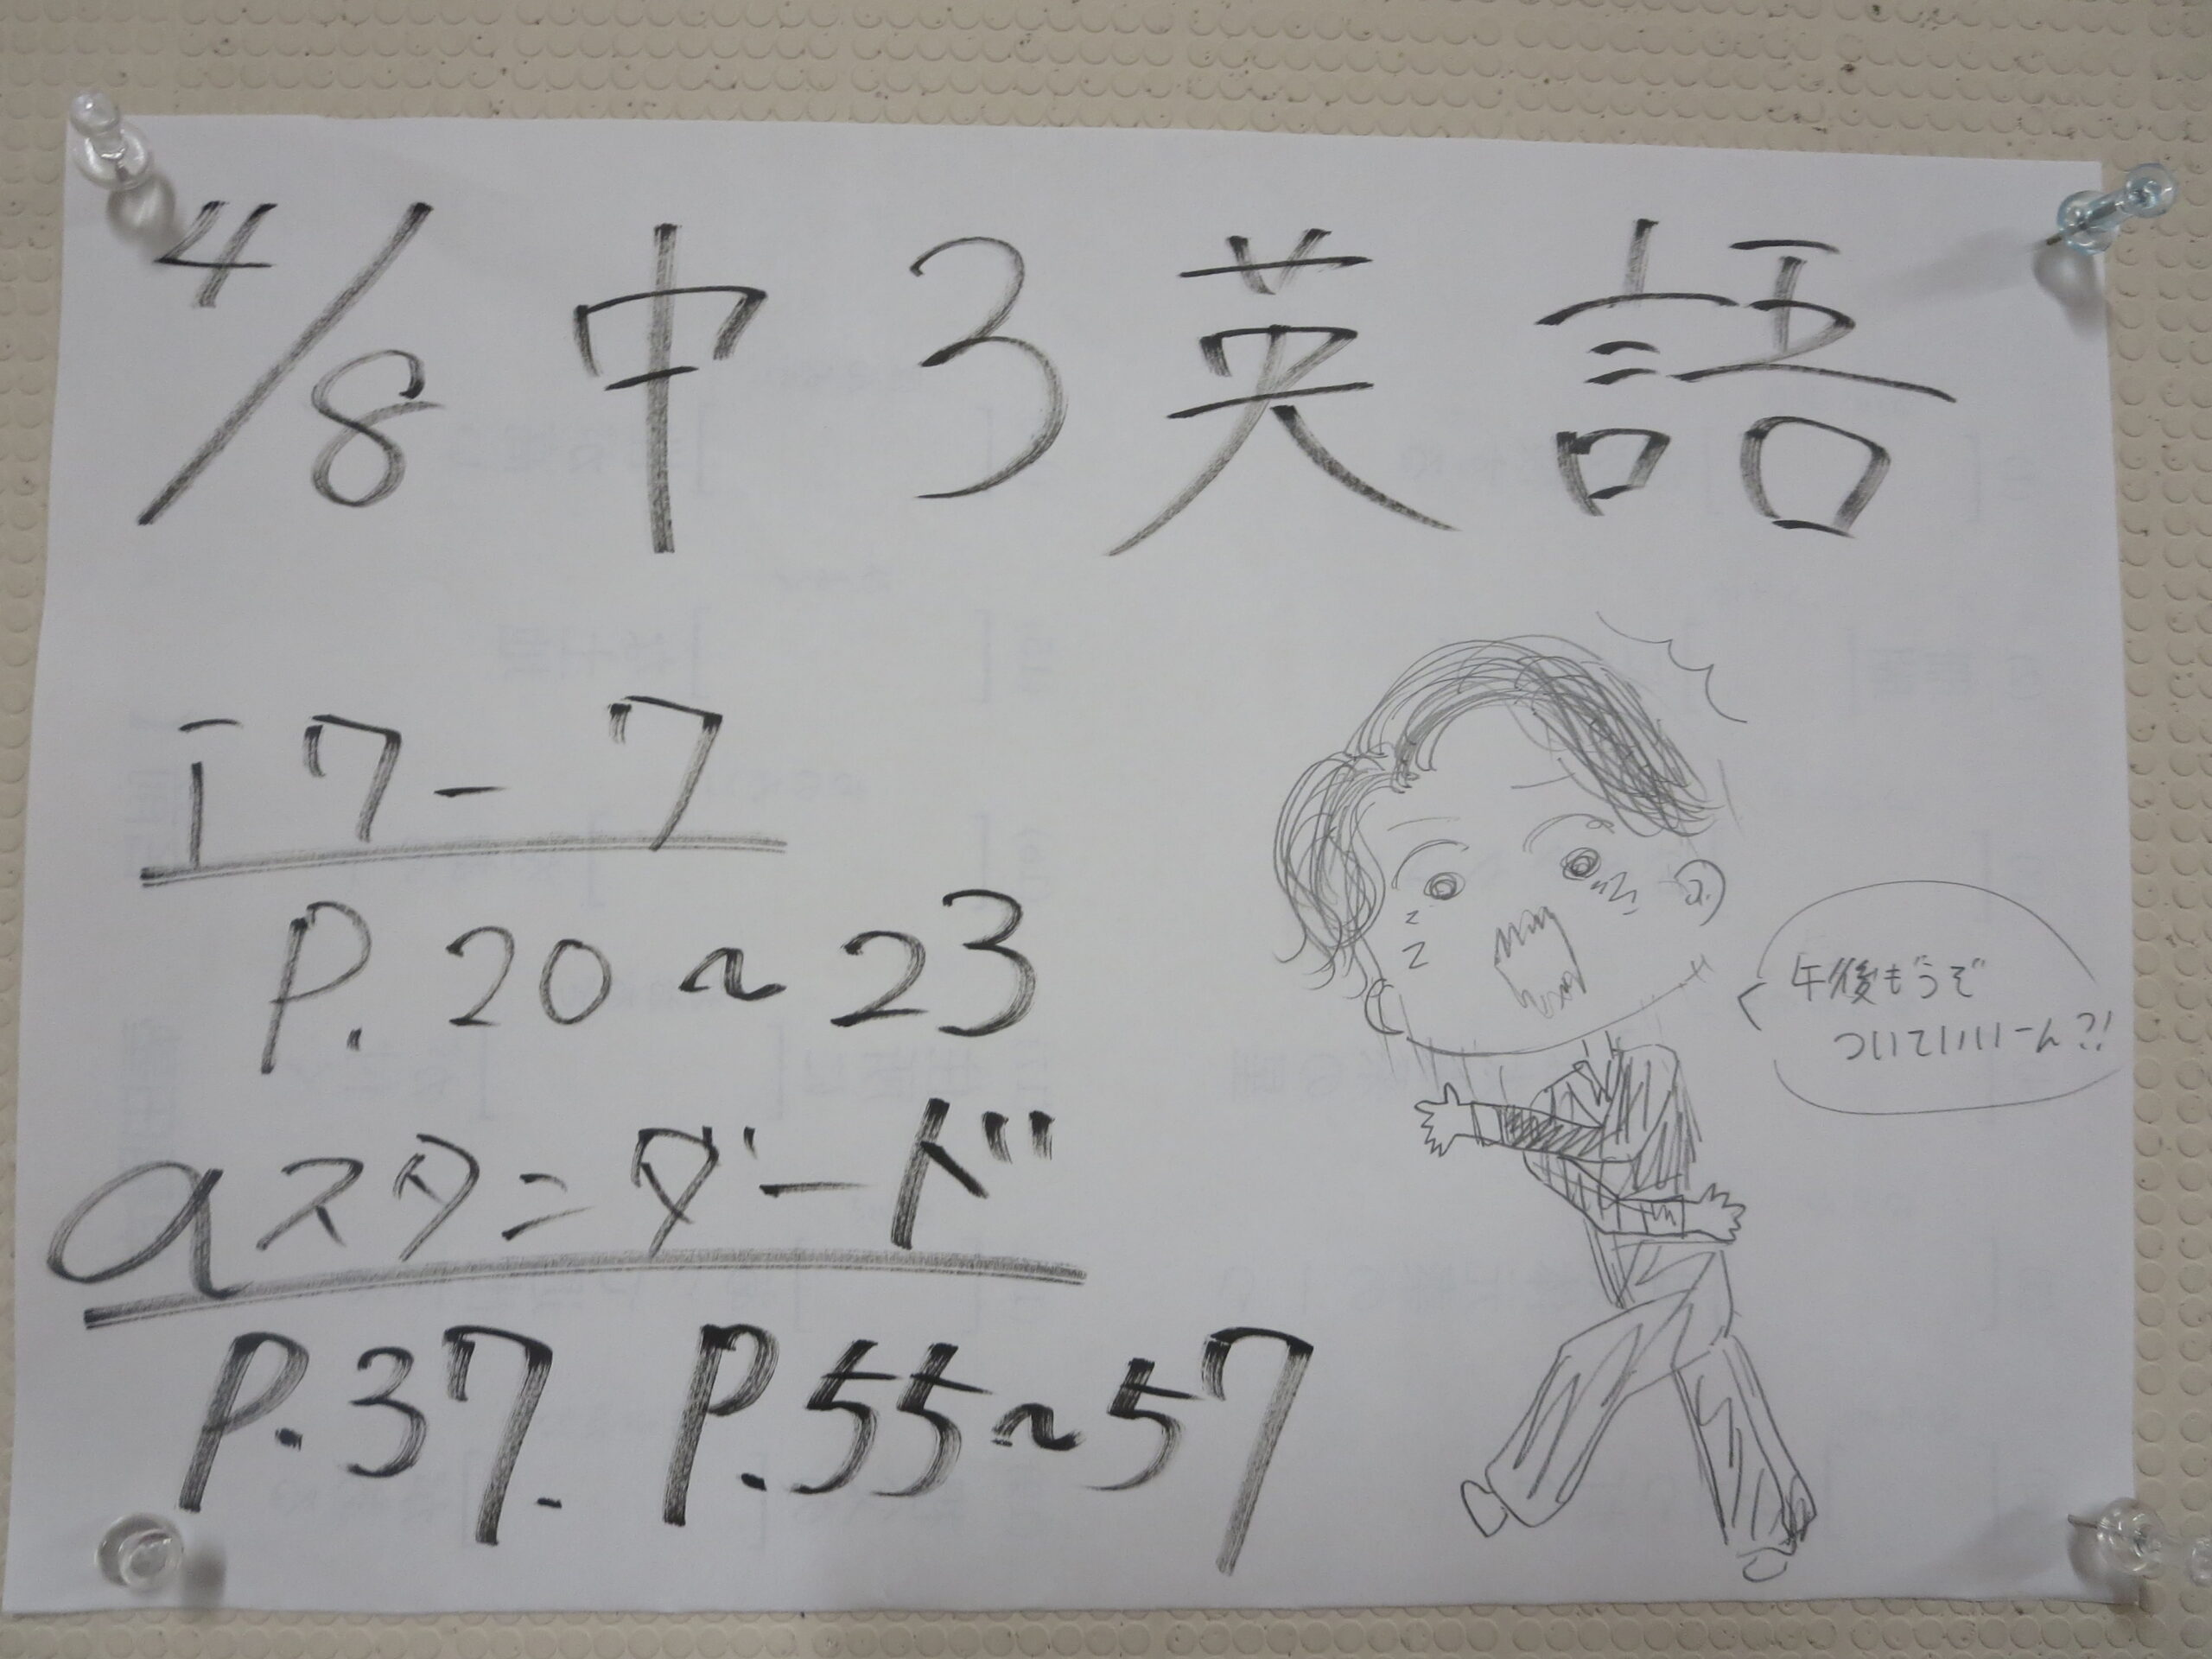 4/8 中3英語
iワーク
P.20~23
aスタンダード
P.37. P.55~57
午後もうぞ
ついていいーん?!